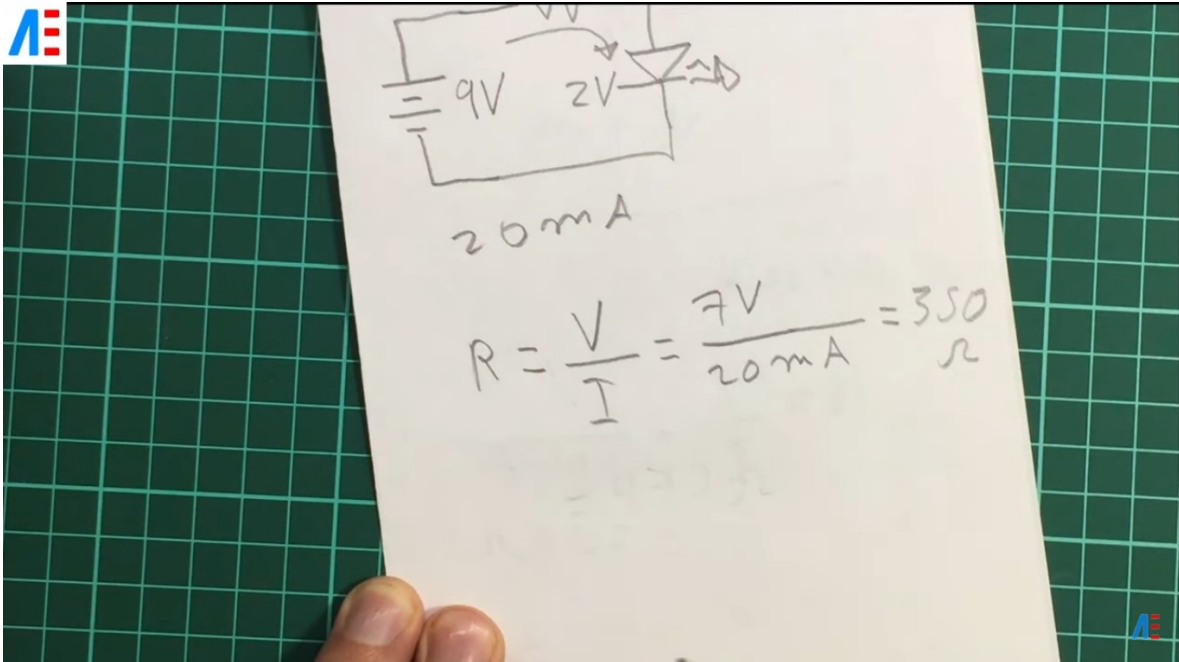 AE
9V 2V
20mA
R = V/I = 7V/20mA = 350 Ω
AE